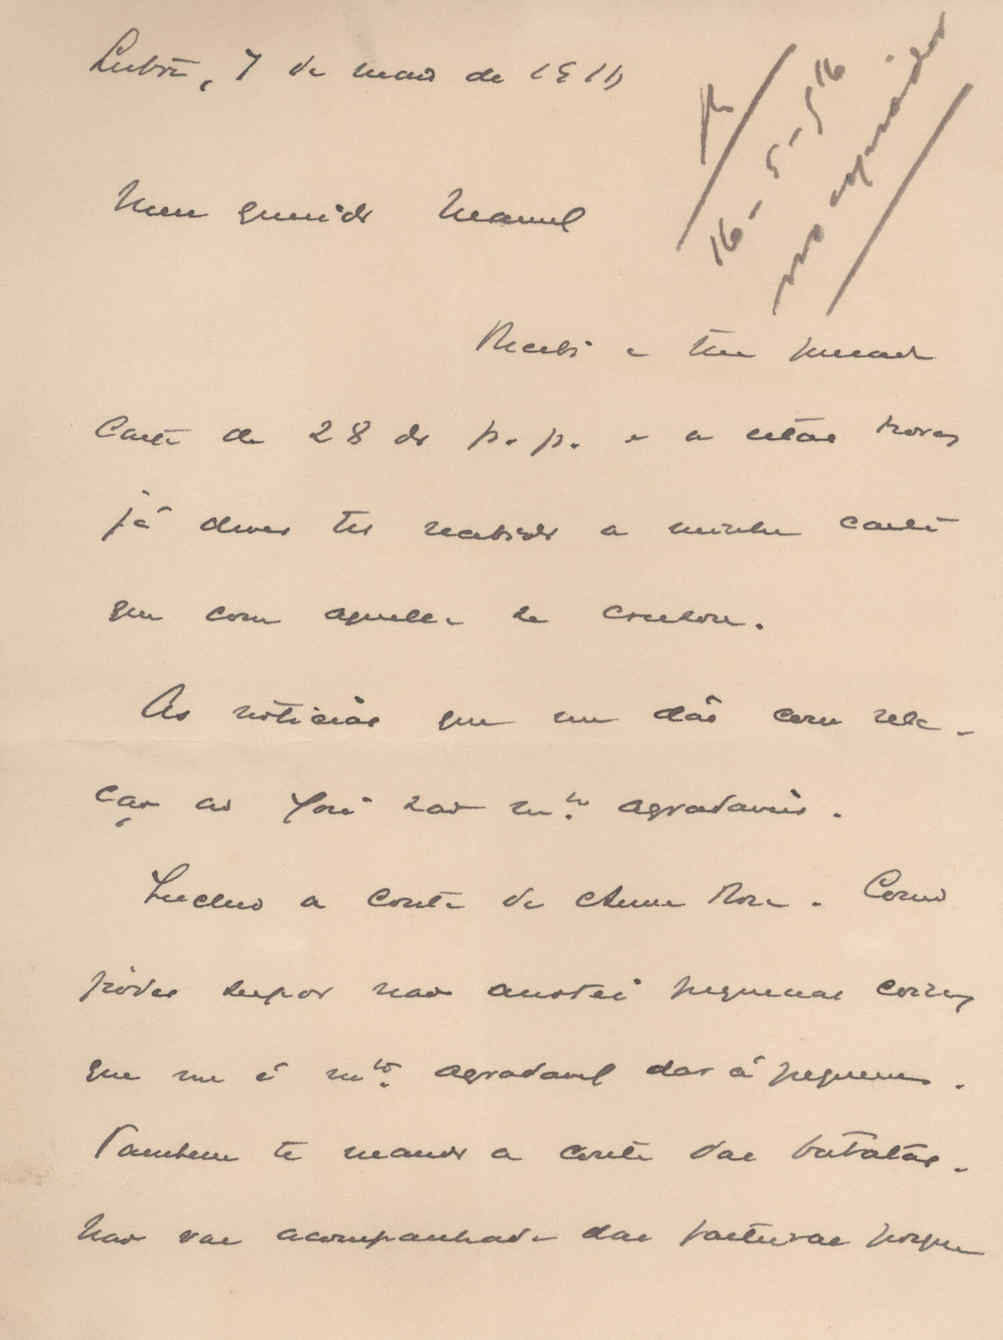 Lisbôa, 7 de maio de 1916
R
16-5-516
Meu querido Manuel
Recebi a tua presada
carta de 28 do p. p. e a estas horas
já deves ter recebido a minha carta
que com aquella se crusou.
As noticias que me dás com rela-
ção ao José são m.to agradaveis.
Incluo a conta da Anna Rosa. Como
pódes supor não anotei pequenas coizas
que me é m.to agradavel dar á pequena.
Tambem te mando a conta das batatas.
Não vae acompanhada das facturas porque